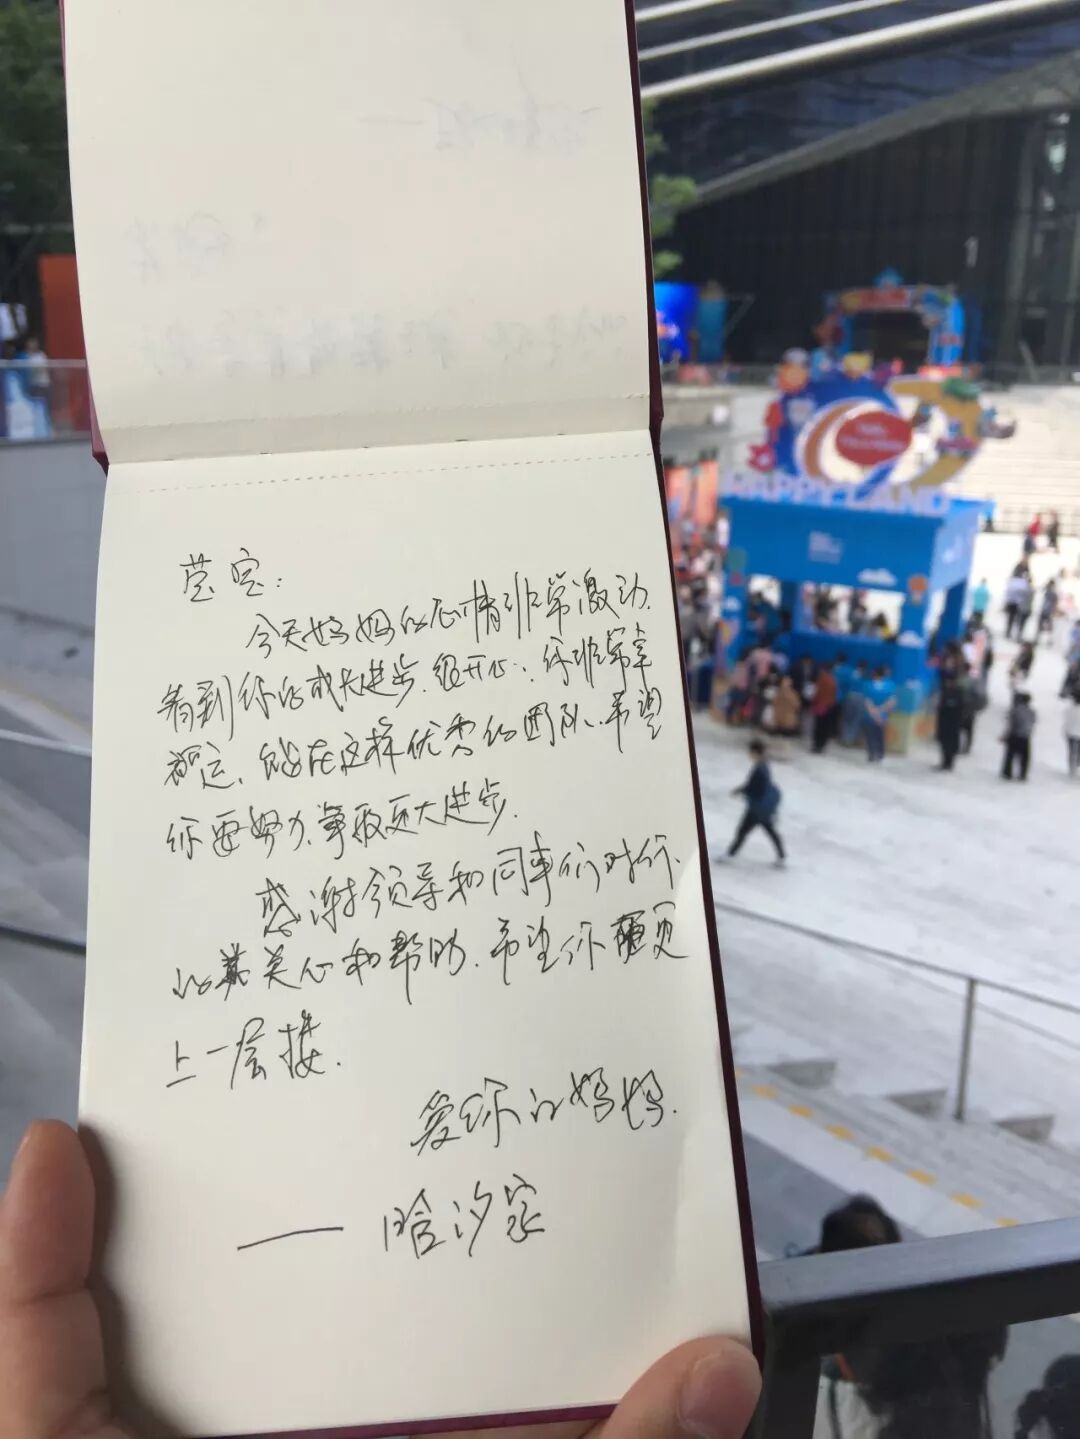 莹宝：
今天妈妈的心情非常激动.
看到你的成长进步.很开心.你非常幸
福运.能在这样优秀的团队.希望
你要努力.争取更大进步.
感谢领导和同事们对你
的关心和帮助.希望你更
上一层楼.
爱你的妈妈.
— 哈汐家
HAPPY LAND